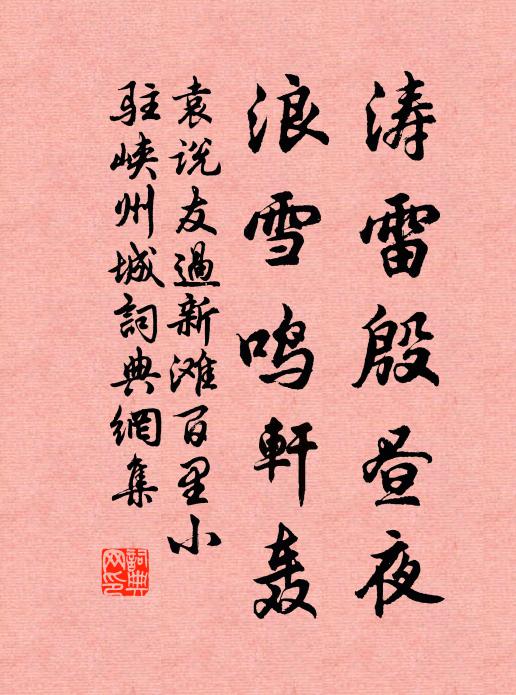 涛雷殷昼夜
浪雪鸣軒轰
袁说友過新滩百里小
驻峡州城詞典網集
詞典网印